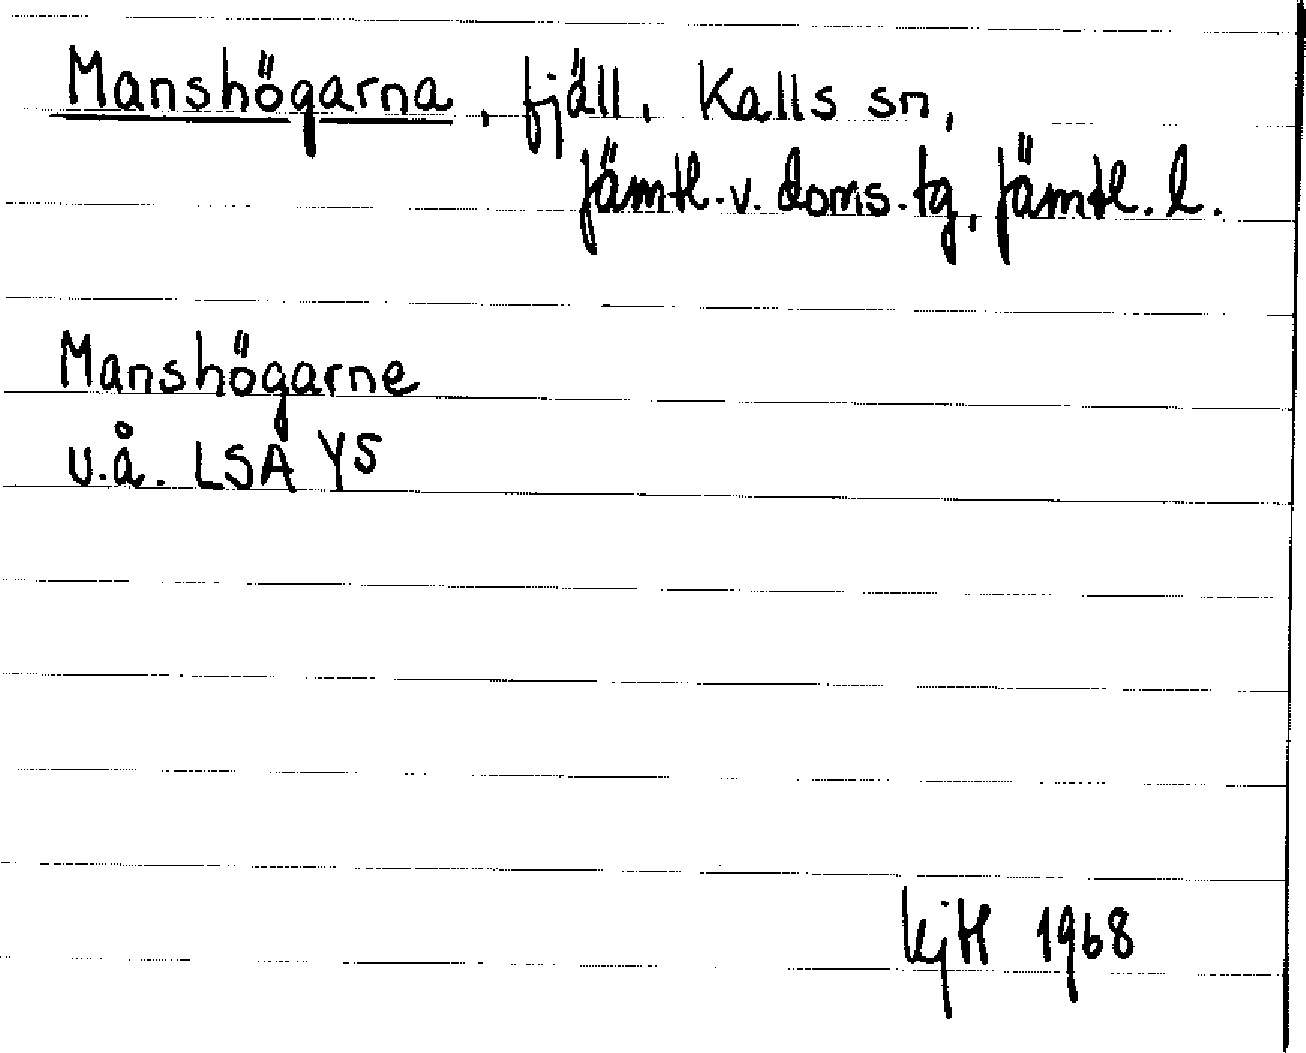 Manshögarna, fjäll, Kalls sn,
Jämtl. v. doms. tg, Jämtl. l.
Manshögarne
u.å. LSA Y5
KjH 1968